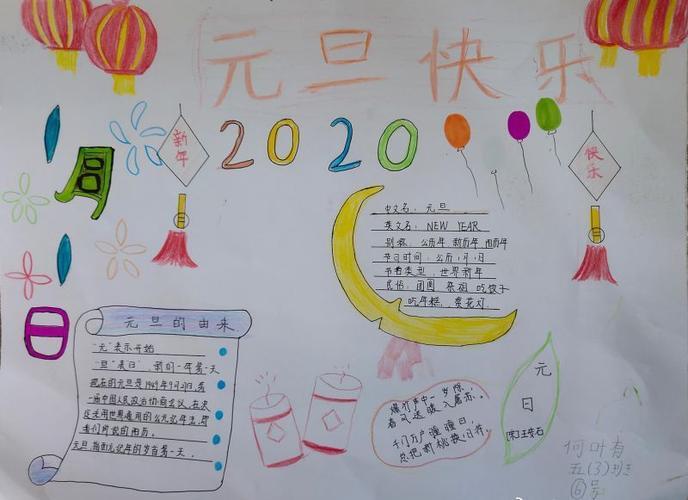 元旦快乐
1月
1日
新年
2020
快乐
中文名：元旦
英文名：NEW YEAR
别称：公历年 新历年 阳历年
节日时间：公历1月1日
节日类型：世界新年
民俗：团圆 祭祖 吃饺子
吃年糕、赏花灯
元旦的由来
"元"表示开始
"旦"表日，新的一年第一天
现在的元旦是1949年9月27日,第
一届中国人民政治协商会议,在决
采用世界通用的公元纪年法,即
我们所说的阳历。
元旦,指公元纪年的岁首第一天。
爆竹声中一岁除,
春风送暖入屠苏。
千门万户曈曈日,
总把新桃换旧符。
元
日
[宋]王安石
何叶青
五(3)班
⑥号